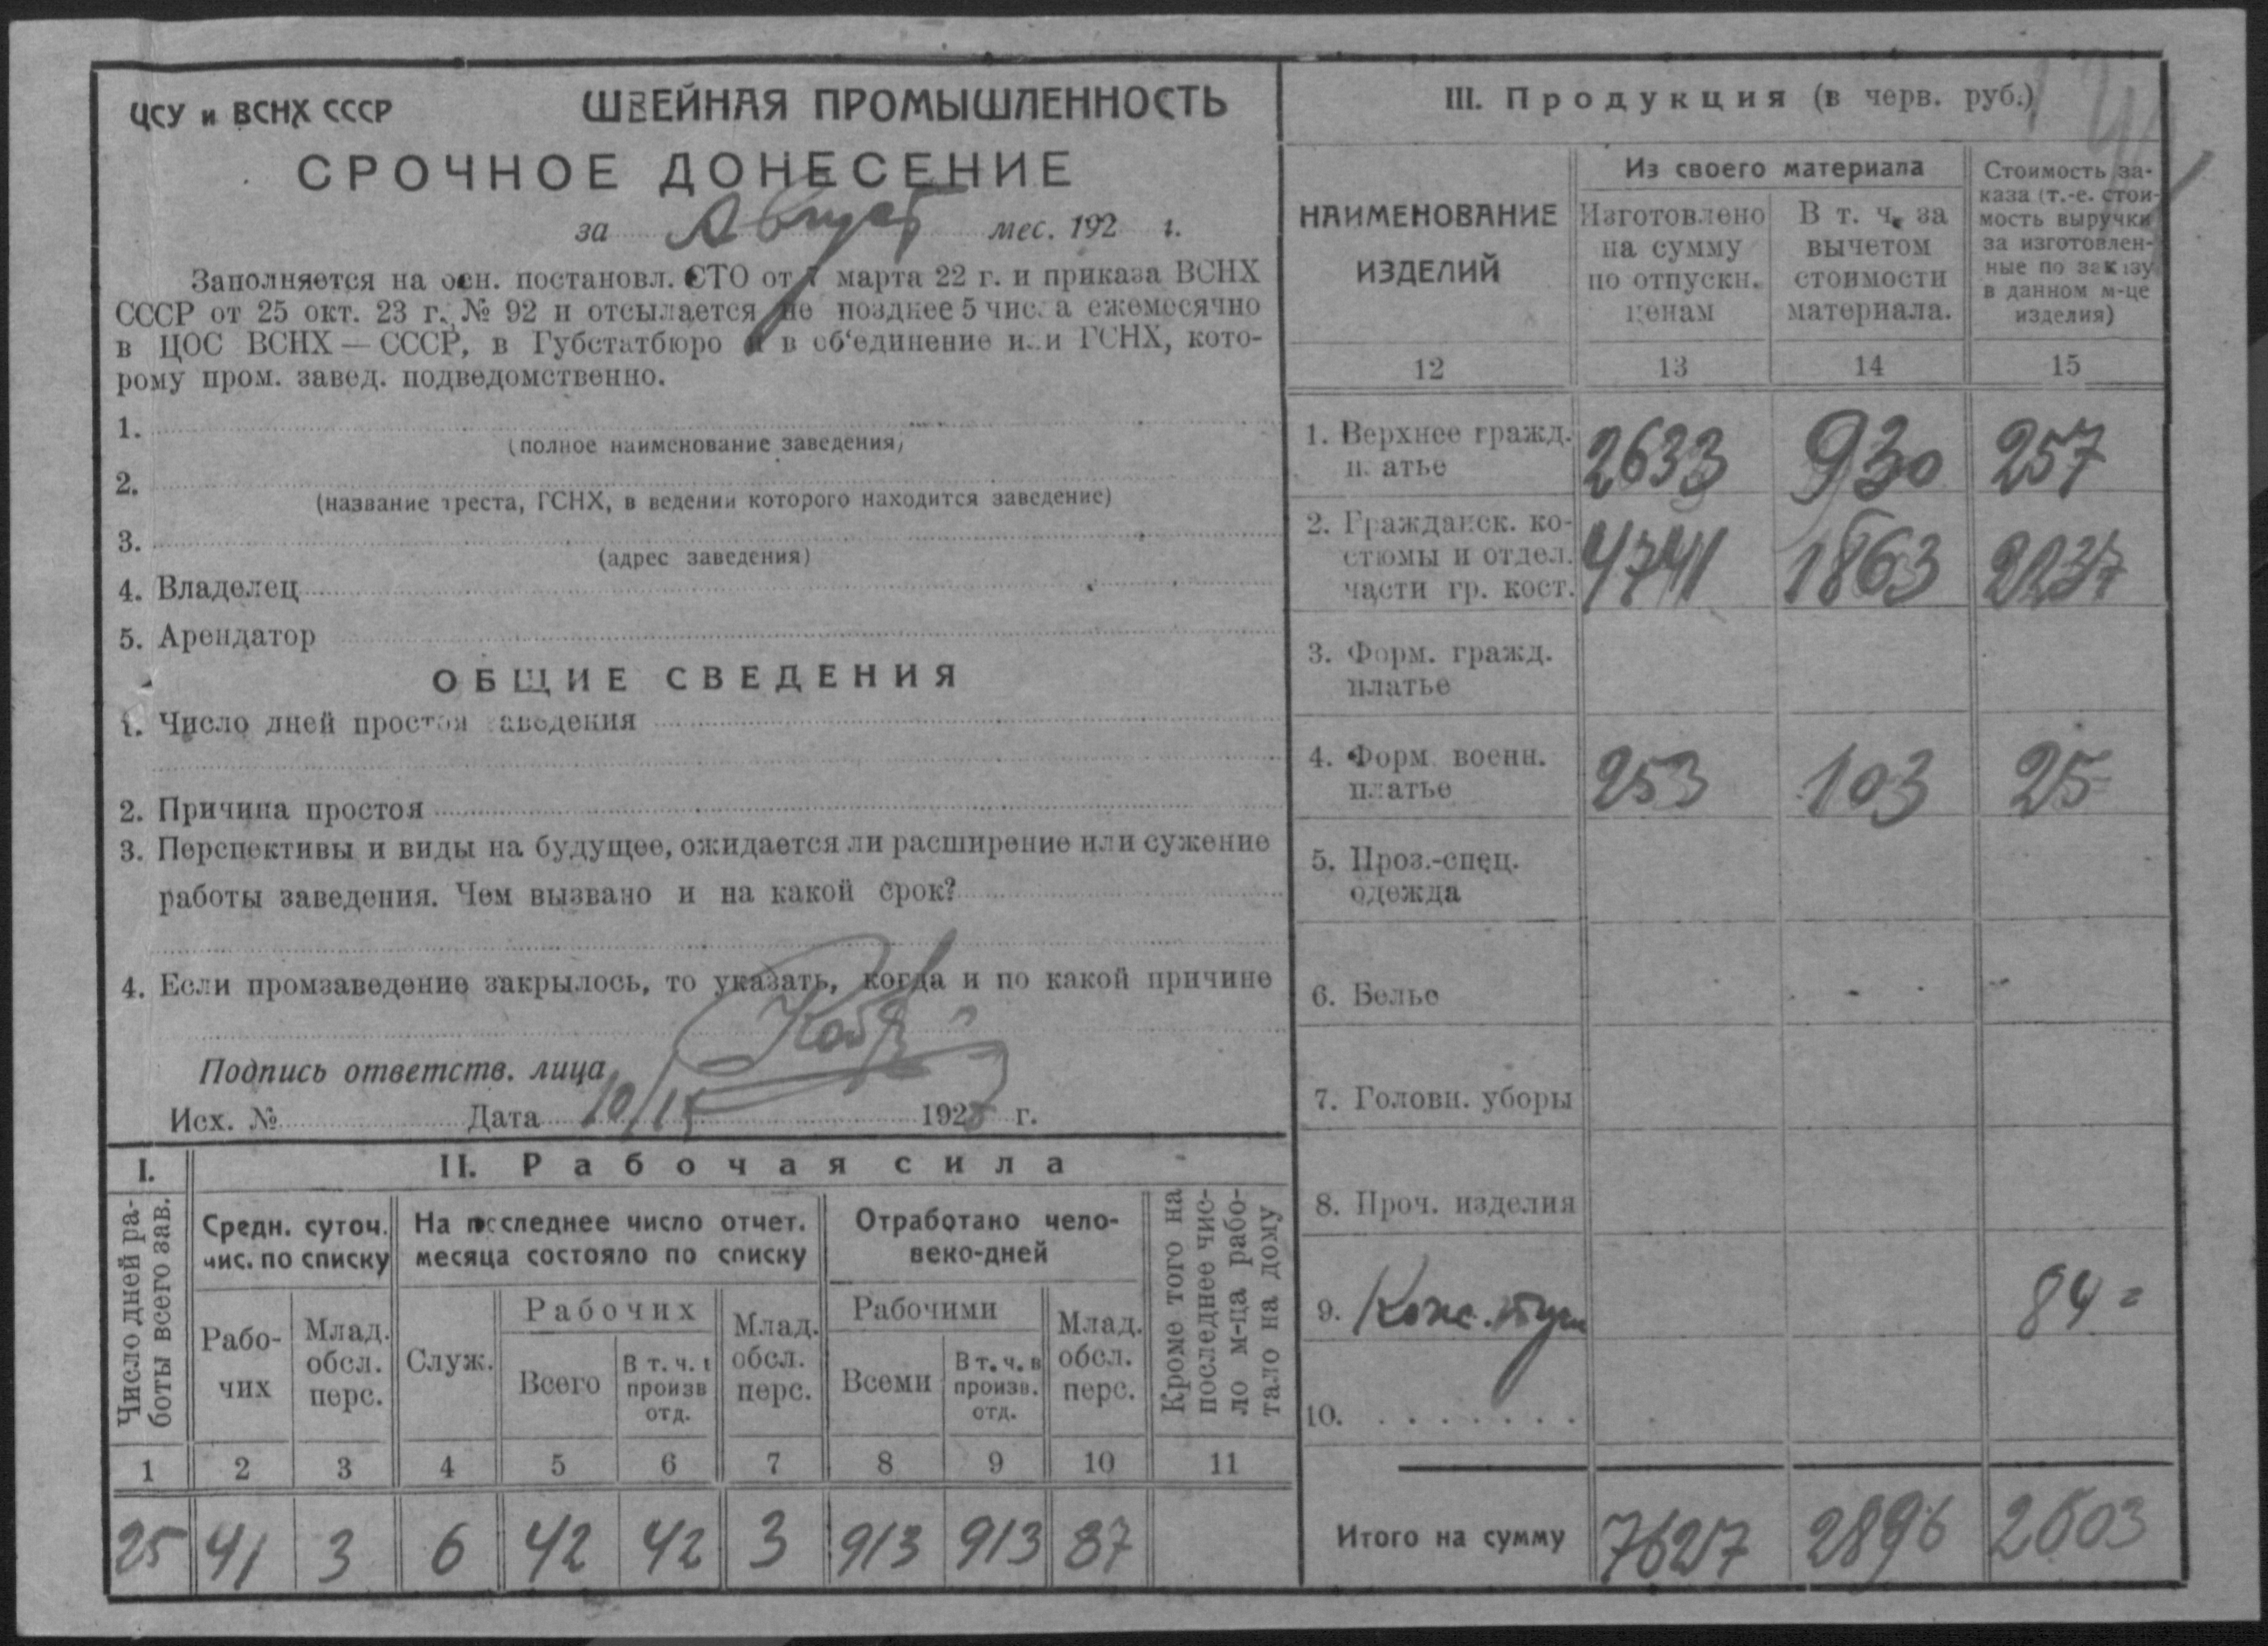 ЦСУ и ВСНХ СССР
ШВЕЙНАЯ ПРОМЫШЛЕННОСТЬ
СРОЧНОЕ ДОНЕСЕНИЕ
за Август мес. 192 г.
Заполняется на осн. постановл. СТО от 7 марта 22 г. и приказа ВСНХ
СССР от 25 окт. 23 г. № 92 и отсылается не позднее 5 числа ежемесячно
в ЦОС ВСНХ — СССР, в Губстатбюро и в об‘единение или ГСНХ, кото-
рому пром. завед. подведомственно.
1.
(полное наименование заведения)
2.
(название треста, ГСНХ, в ведении которого находится заведение)
3.
(адрес заведения)
4. Владелец
5. Арендатор
ОБЩИЕ СВЕДЕНИЯ
1. Число дней простоя заведения
2. Причина простоя
3. Перспективы и виды на будущее, ожидается ли расширение или сужение
работы заведения. Чем вызвано и на какой срок?
4. Если промзаведение закрылось, то указать, когда и по какой причине
Подпись ответств. лица
Исх. № Дата 10/IX 1925 г.
I.
Число дней ра-
боты всего зав.
II. Рабочая сила
Средн. суточ.
чис. по списку
На последнее число отчет.
месяца состояло по списку
Отработано чело-
веко-дней
Кроме того на
последнее чис-
ло м-ца рабо-
тало на дому
Рабо-
чих
Млад.
обсл.
перс.
Служ.
Рабочих
Всего
В т. ч. в
произв
отд.
Млад.
обсл.
перс.
Рабочими
Всеми
В т. ч. в
произв.
отд.
Млад.
обсл.
перс.
1 2 3 4 5 6 7 8 9 10 11
25 41 3 6 42 42 3 913 913 87
III. Продукция (в черв. руб.)
НАИМЕНОВАНИЕ
ИЗДЕЛИЙ
Из своего материала
Изготовлено
на сумму
по отпускн.
ценам
В т. ч. за
вычетом
стоимости
материала.
Стоимость за-
каза (т.-е. стои-
мость выручки
за изготовлен-
ные по заказу
в данном м-це
изделия)
12 13 14 15
1. Верхнее гражд.
платье
2633 930 257
2. Гражданск. ко-
стюмы и отдел.
части гр. кост.
4741 1863 2237
3. Форм. гражд.
платье
4. Форм военн.
платье
253 103 25
5. Проз.-спец.
одежда
6. Белье
7. Головн. уборы
8. Проч. изделия
9. 84 =
10. . . . . . . .
Итого на сумму 7627 2896 2603